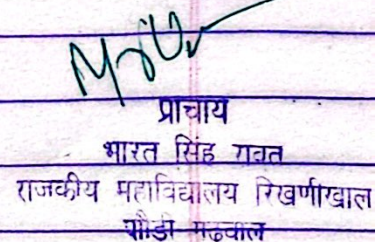 प्राचाय
भारत सिंह रावत
राजकीय महाविद्यालय रिखणीखाल
पौडी गढवाल